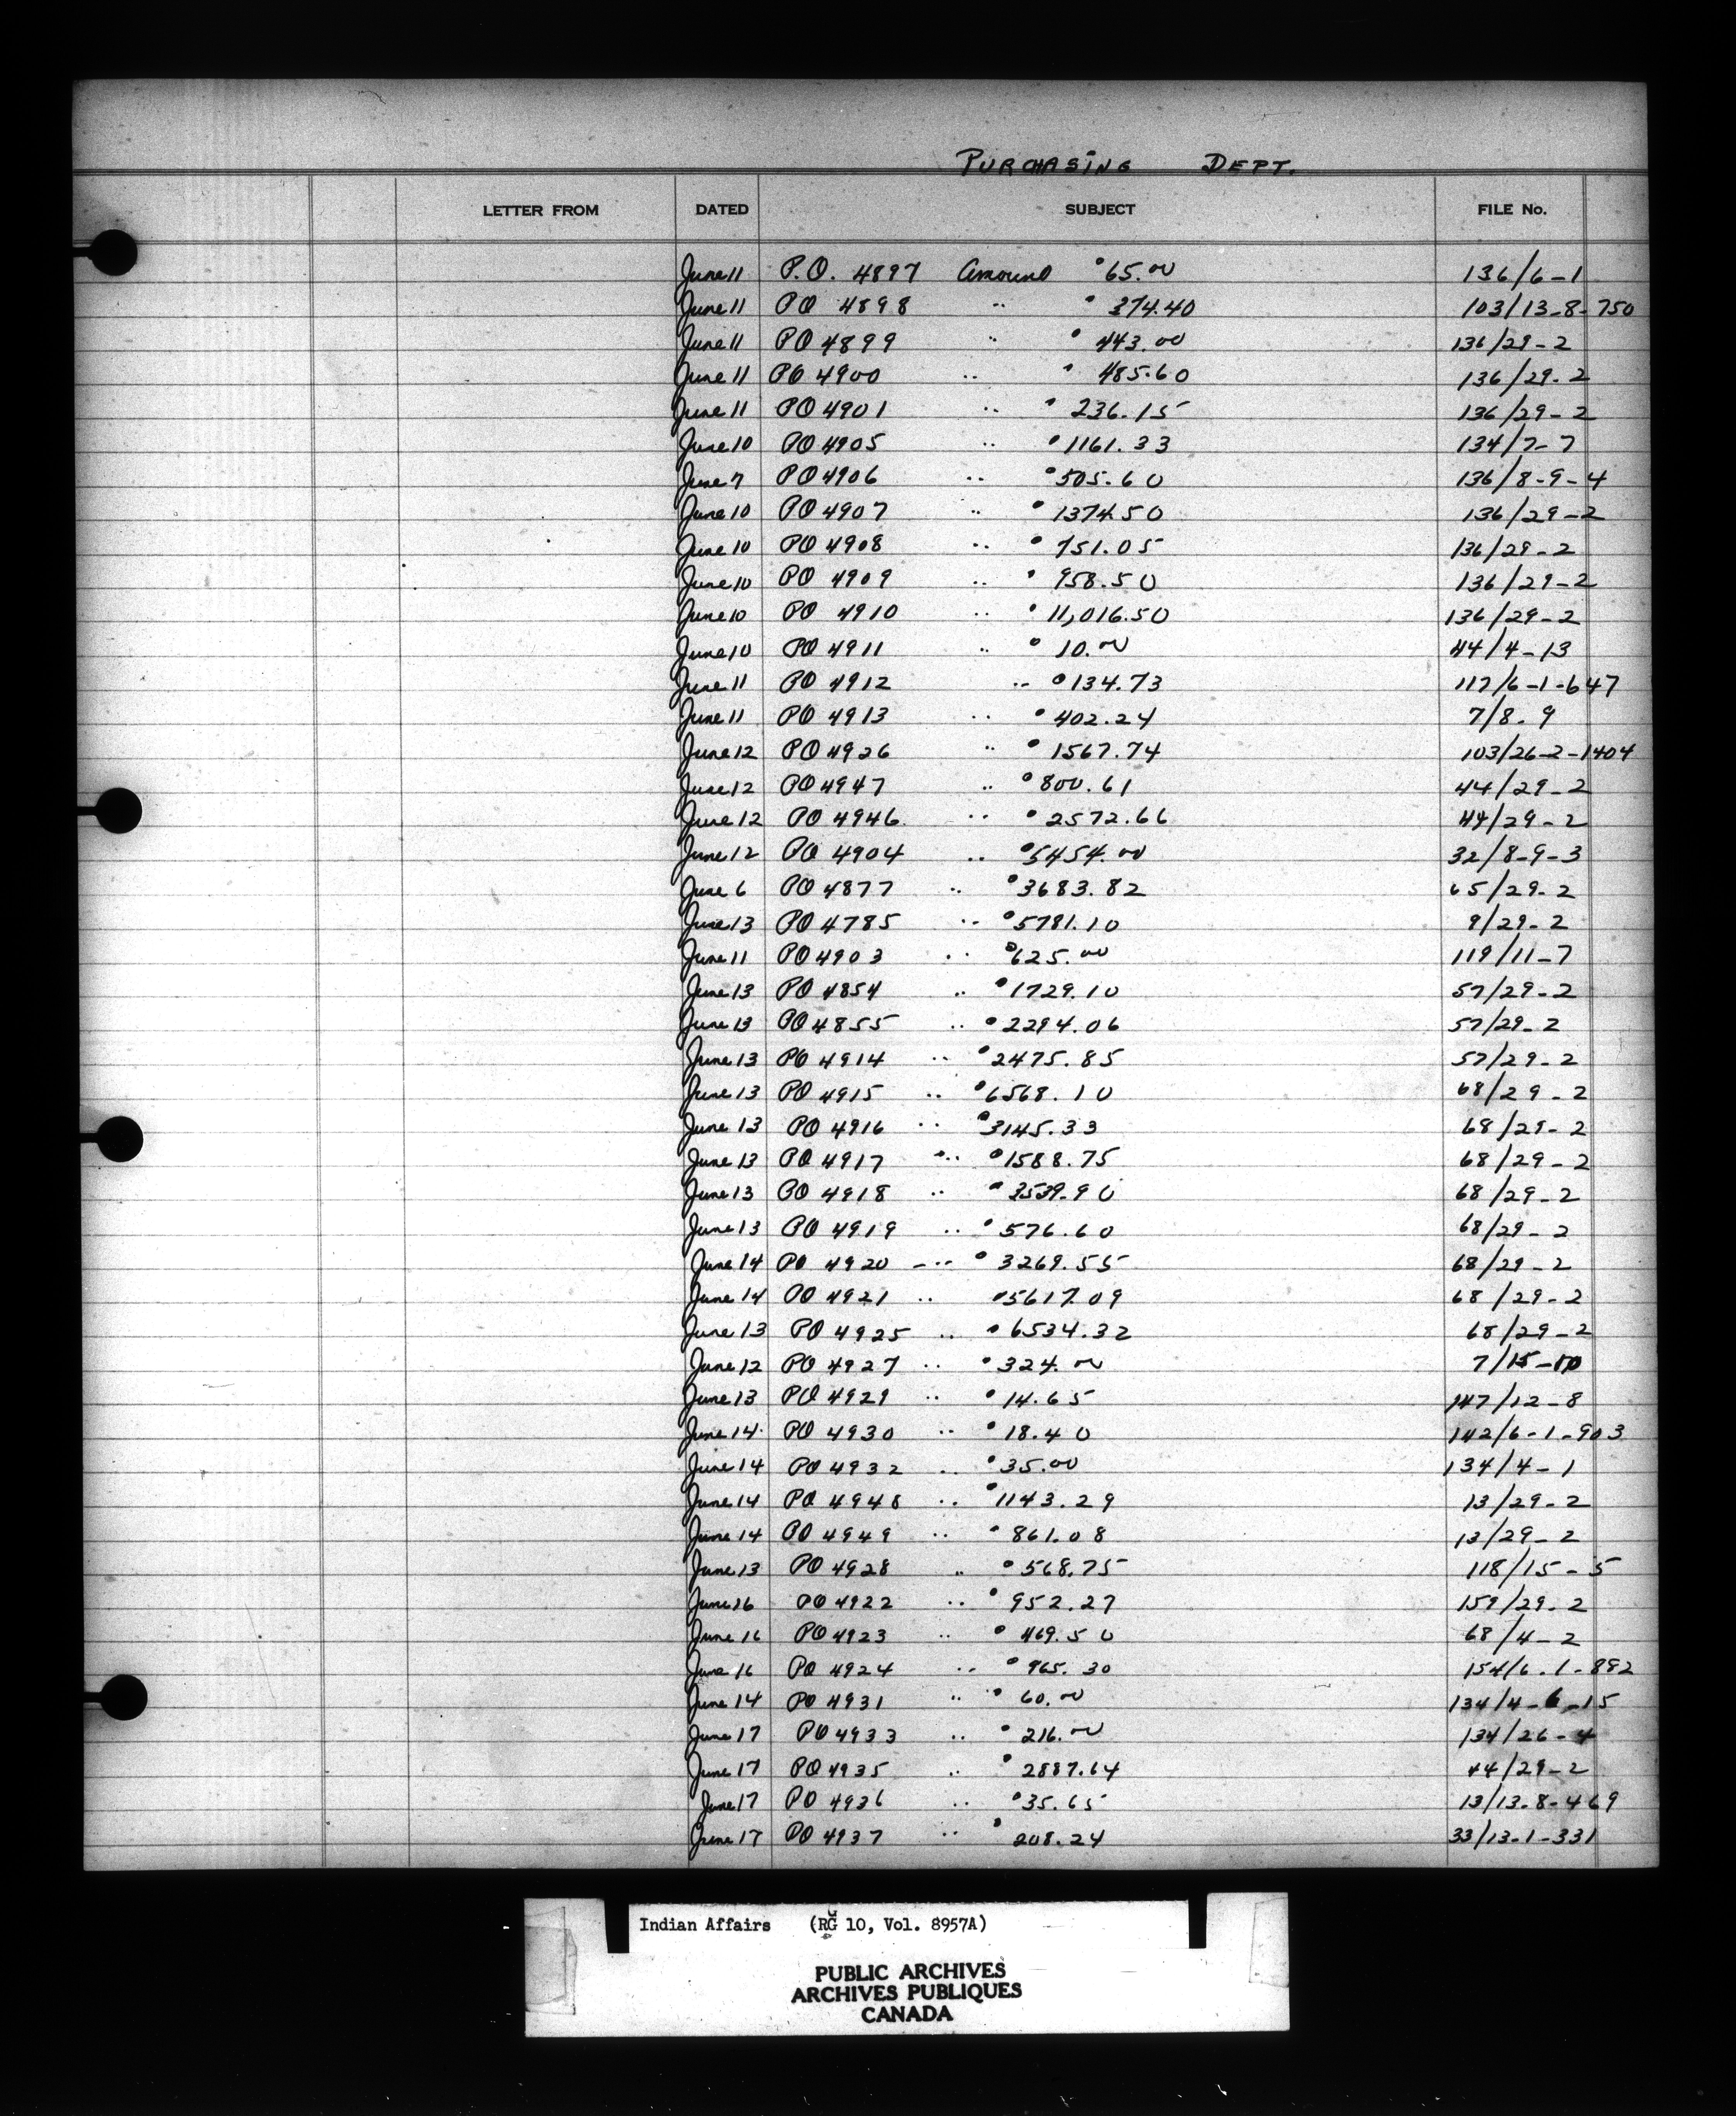 PURCHASING DEPT.
LETTER FROM DATED SUBJECT FILE No.
June 11 P.O. 4897 Amount 65.00 136/6-1
June 11 PO 4898 " 374.40 103/13-8-750
June 11 PO 4899 " 443.00 136/29-2
June 11 PO 4900 " 485.60 136/29-2
June 11 PO 4901 " 236.15 136/29-2
June 10 PO 4905 " 1161.33 134/7-7
June 7 PO 4906 " 505.60 136/8-9-4
June 10 PO 4907 " 1374.50 136/29-2
June 10 PO 4908 " 751.05 136/29-2
June 10 PO 4909 " 958.50 136/29-2
June 10 PO 4910 " 11,016.50 136/29-2
June 10 PO 4911 " 10.00 44/4-13
June 11 PO 4912 " 134.73 117/6-1-647
June 11 PO 4913 " 402.24 7/8-9
June 12 PO 4926 " 1567.74 103/26-2-1404
June 12 PO 4947 " 800.61 44/29-2
June 12 PO 4946 " 2572.66 44/29-2
June 12 PO 4904 " 5454.00 32/8-9-3
June 6 PO 4877 " 3683.82 65/29-2
June 13 PO 4785 " 5781.10 9/29-2
June 11 PO 4903 " 625.00 119/11-7
June 13 PO 4854 " 1729.10 57/29-2
June 13 PO 4855 " 2294.06 57/29-2
June 13 PO 4914 " 2475.85 57/29-2
June 13 PO 4915 " 6568.10 68/29-2
June 13 PO 4916 " 3145.33 68/29-2
June 13 PO 4917 " 1588.75 68/29-2
June 13 PO 4918 " 3539.90 68/29-2
June 13 PO 4919 " 576.60 68/29-2
June 14 PO 4920 " 3269.55 68/29-2
June 14 PO 4921 " 5617.09 68/29-2
June 13 PO 4925 " 6534.32 68/29-2
June 12 PO 4927 " 324.00 7/15-10
June 13 PO 4929 " 14.65 147/12-8
June 14 PO 4930 " 18.40 142/6-1-903
June 14 PO 4932 " 35.00 134/4-1
June 14 PO 4948 " 1143.29 13/29-2
June 14 PO 4949 " 861.08 13/29-2
June 13 PO 4928 " 568.75 118/15-5
June 16 PO 4922 " 952.27 159/29-2
June 16 PO 4923 " 469.50 68/4-2
June 16 PO 4924 " 965.30 154/6-1-892
June 14 PO 4931 " 60.00 134/4-6-15
June 17 PO 4933 " 216.00 134/26-4
June 17 PO 4935 " 2887.64 44/29-2
June 17 PO 4936 " 35.65 13/13-8-469
June 17 PO 4937 " 208.24 33/13-1-331
Indian Affairs (RG 10, Vol. 8957A)
PUBLIC ARCHIVES
ARCHIVES PUBLIQUES
CANADA